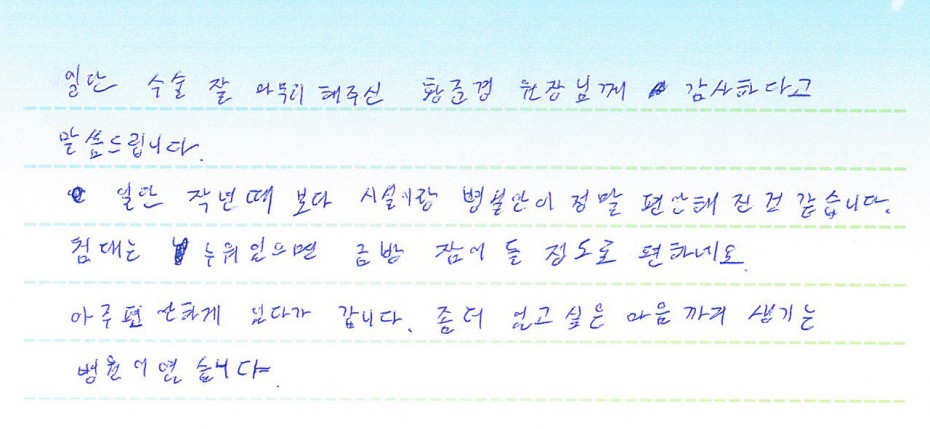 일단 수술 잘 마무리 해주신 황준겸 원장님께 감사하다고
말씀드립니다.
일단 작년때 보다 시설이랑 병실안이 정말 편안해 진것 같습니다.
침대는 누워있으면 금방 잠이 들 정도로 편하네요.
아주 편안하게 있다가 갑니다. 좀더 있고싶은 마음까지 생기는
병원이였습니다.